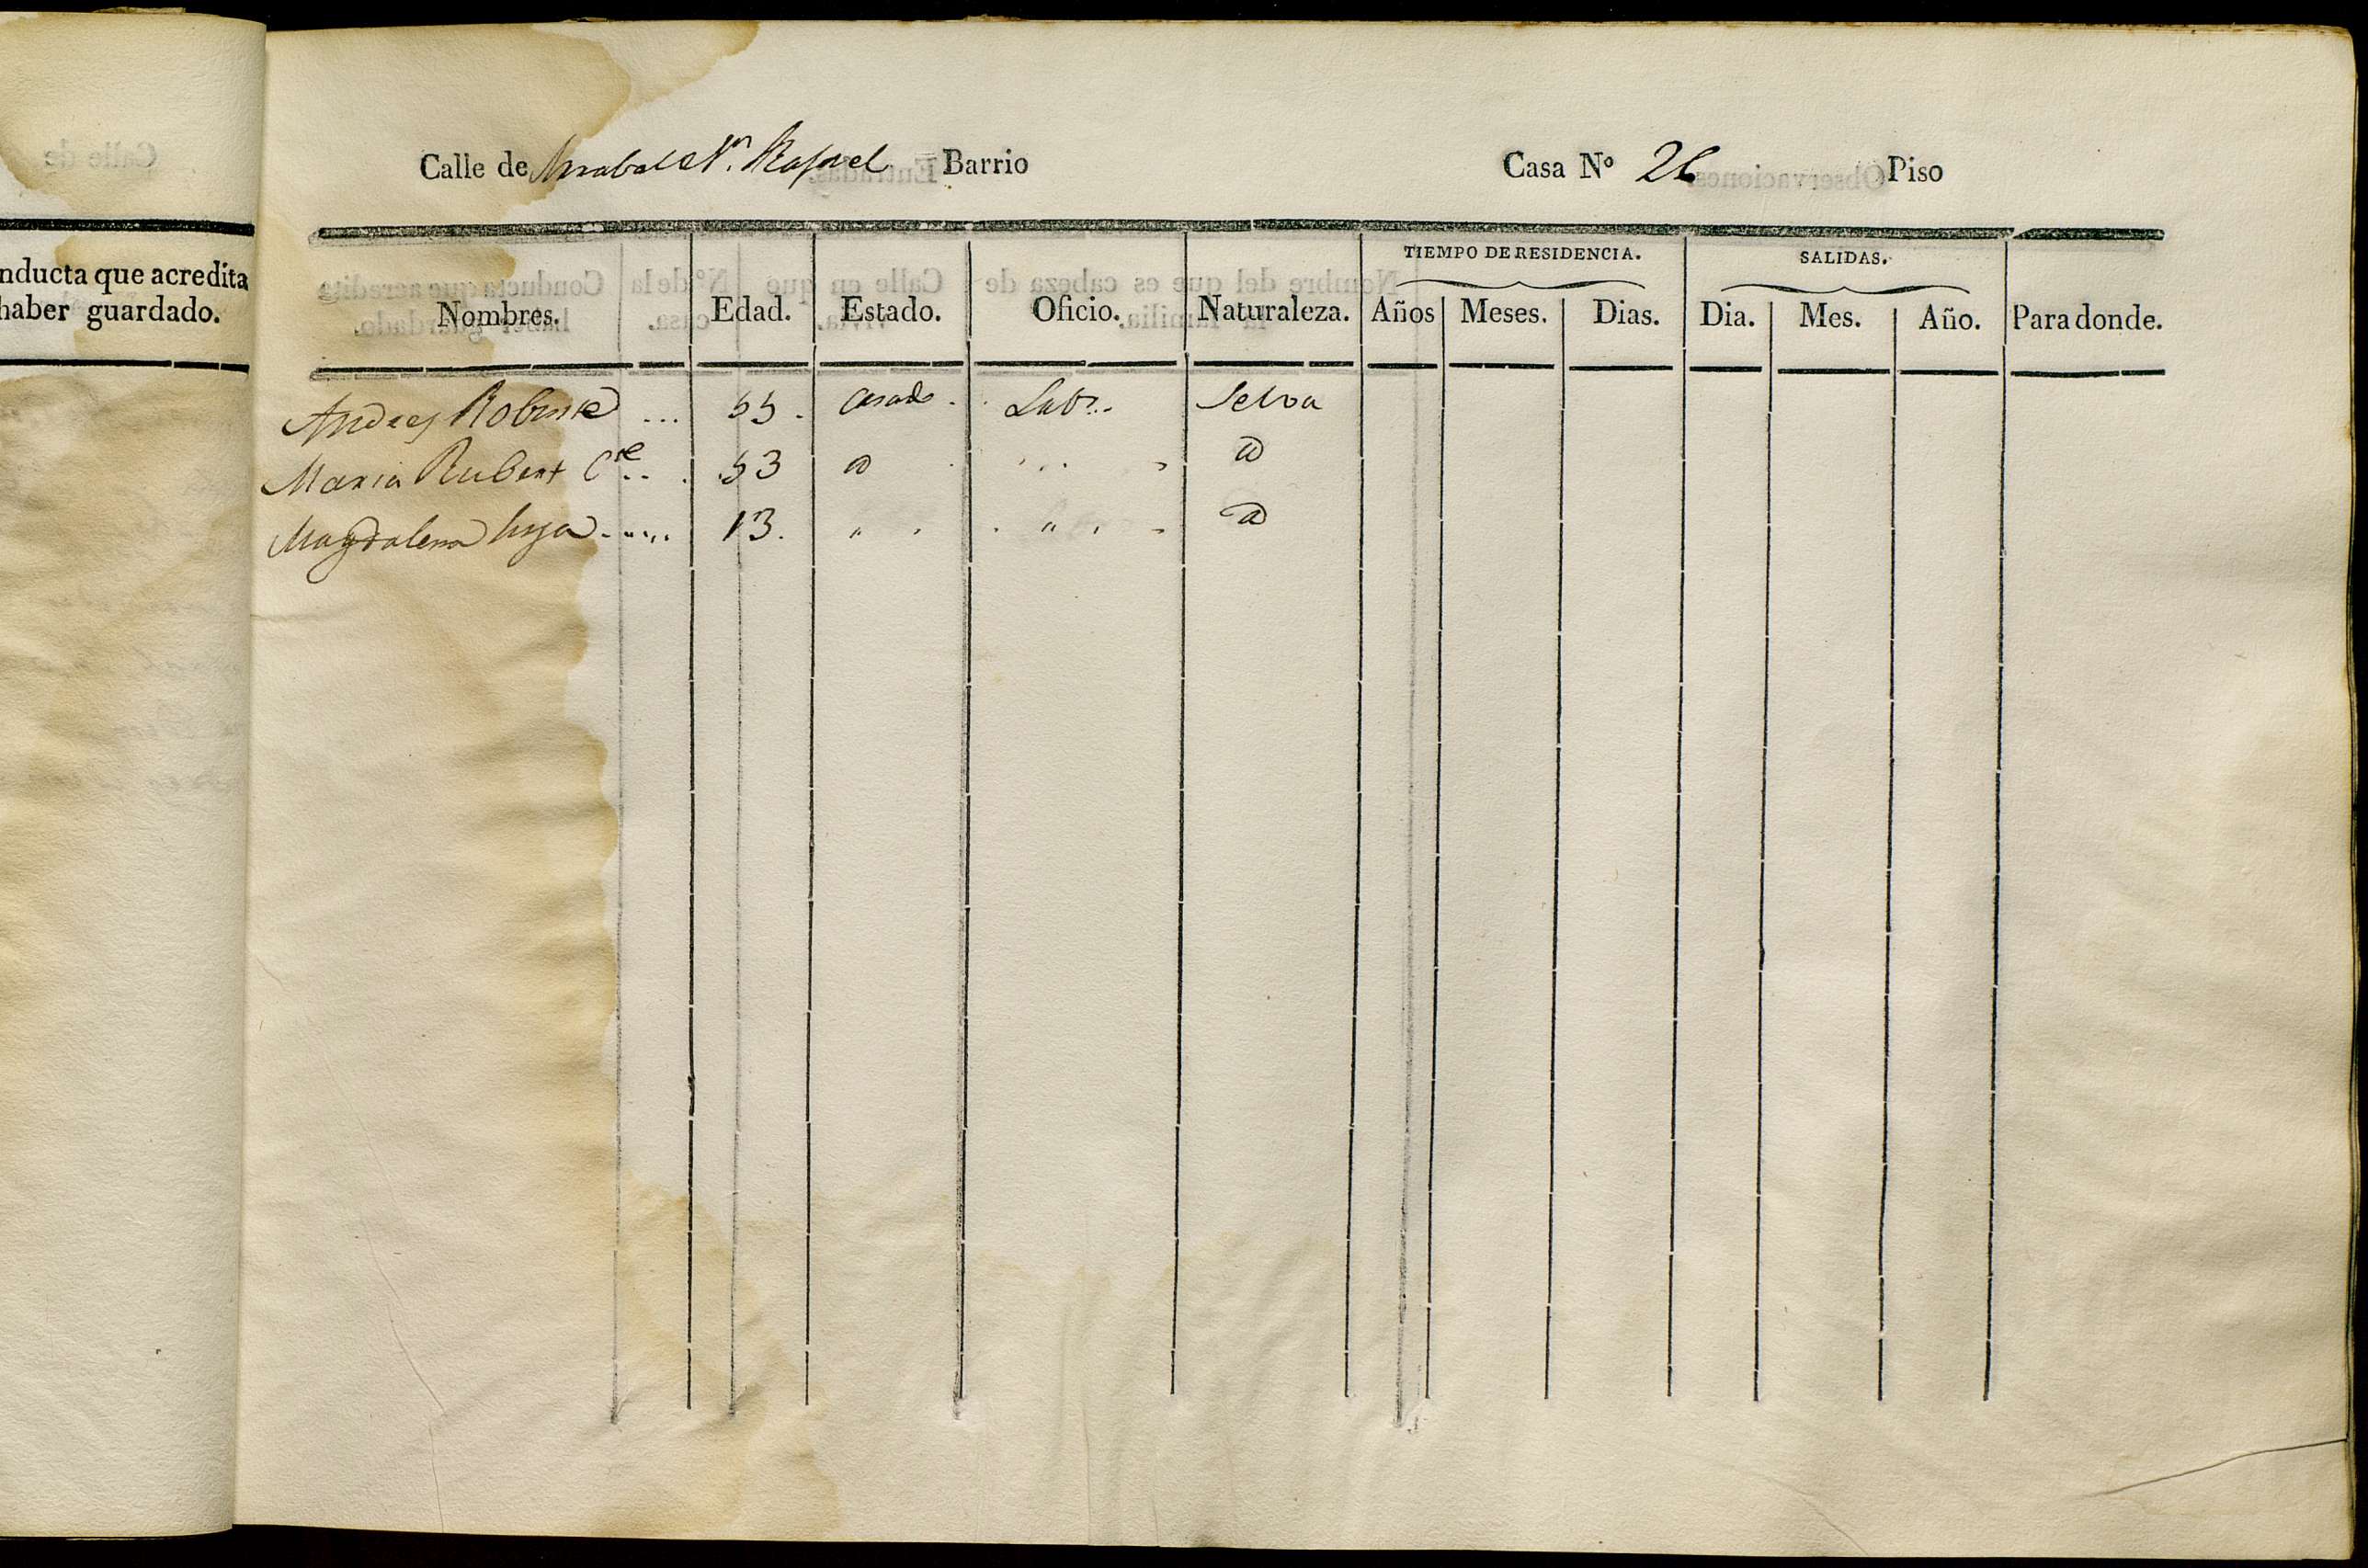 Calle de Arrabal Sn. Rafael Barrio Casa Nº 26 Piso
nducta que acredita
haber guardado.
TIEMPO DE RESIDENCIA. SALIDAS.
Nombres. Edad. Estado. Oficio. Naturaleza. Años Meses. Dias. Dia. Mes. Año. Para donde.
Andres ... 55. Casado. Labr... Selva
Maria Rubert Cte... 53 @ @
Magdalena hija ..... 13. " " @